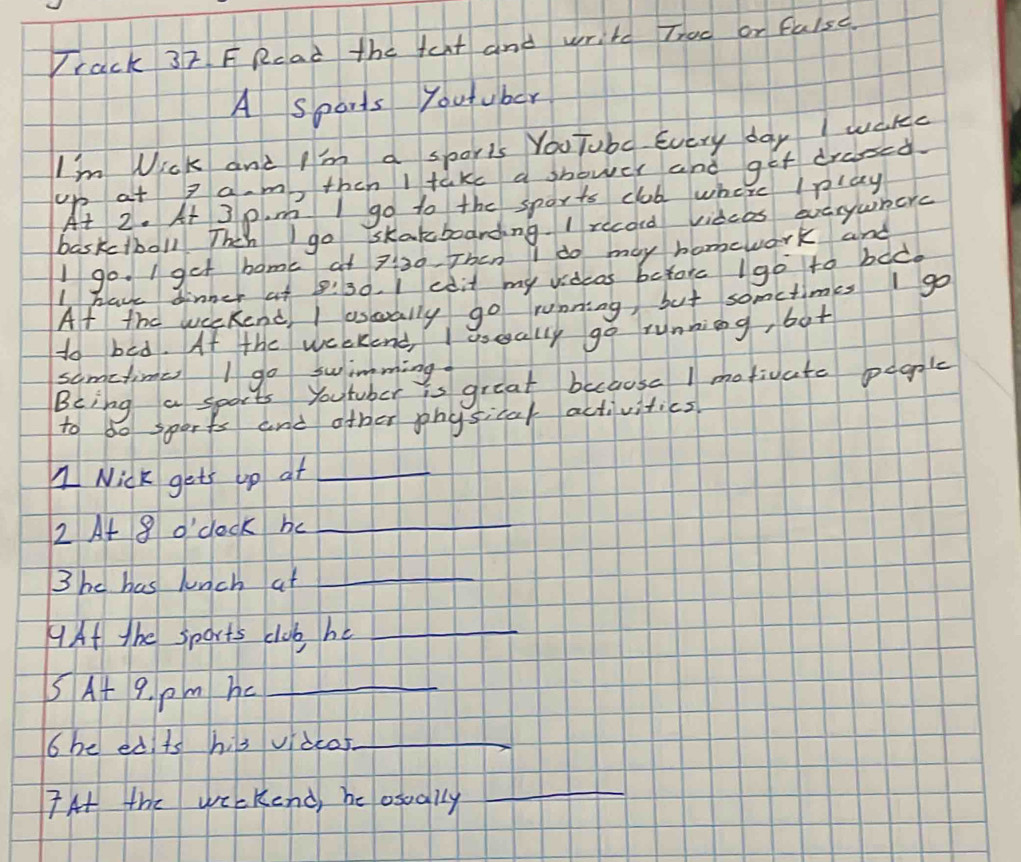 Track 37. F Read the text and write True or False.
A sports Youtuber
I'm Nick and I'm a sports YouTube. Every day I wake
up at 7 a.m, then I take a shower and get dressed.
At 2. At 3 p.m I go to the sports club where I play
basketball. Then I go skateboarding. I record videos everywhere
I go. I get home at 7:30. Then I do may homework and
I have dinner at 8:30. I edit my videos before I go to bed.
At the weekend, I usually go running, but sometimes I go
to bed. At the weekend, I usually go running, but
sometimes I go swimming.
Being a sports Youtuber is great because I motivate people
to do sports and other physical activities.
1 Nick gets up at ______
2 At 8 o'clock he ______
3 he has lunch at ______
4 At the sports club, he ______
5 At 9.pm he ______
6 he edits his videos ______
7 At the weekend, he usually ______